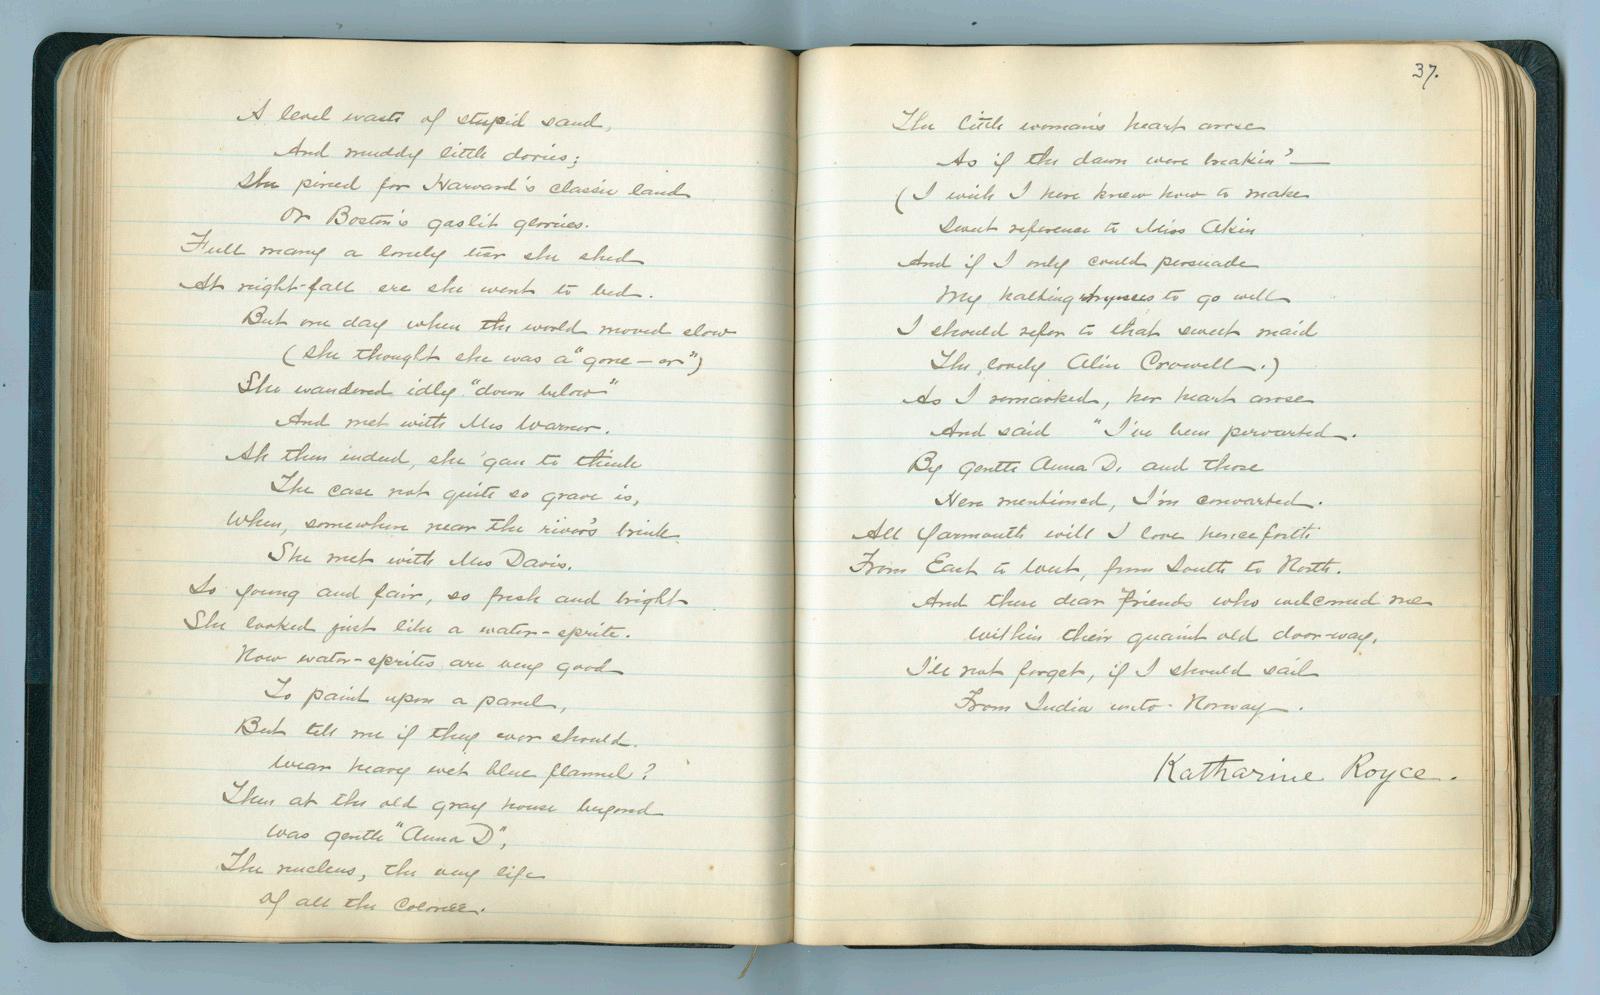 A level waste of stupid sand,
And muddy little dories;
She pined for Harvard's classic land
Or Boston's gaslit glories.
Full many a lonely tear she shed
At night-fall ere she went to bed.
But one day when the world moved slow
(She thought she was a "gone-or")
She wandered idly "down below"
And met with Mrs Warner.
Ah then indeed, she 'gan to think
The case not quite so grave is,
When, somewhere near the river's brink
She met with Mrs Davis.
So young and fair, so fresh and bright
She looked just like a water-sprite.
Now water-sprites are very good
To paint upon a panel,
But tell me if they ever should
Wear heavy wet blue flannel?
Then at the old gray house beyond
Was gentle "Anna D",
The nucleus, the very life
Of all the
37.
The little woman's heart arose
As if the dawn were breakin' —
(I wish I here knew how to make
Sweet reference to Miss Akin
And if I only could persuade
My halting to go well
I should refer to that sweet maid
The lovely Alice Crowell.)
As I remarked, her heart arose
And said "I've been perverted.
By gentle Anna D. and those
Here mentioned, I'm converted.
All Yarmouth will I love henceforth
From East to West, from South to North.
And these dear friends who welcomed me
Within their quaint old door-way,
I'll not forget, if I should sail
From India unto Norway.
Katharine Royce.